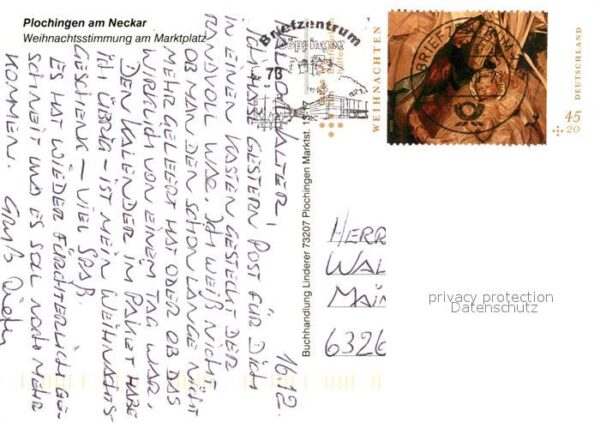 Plochingen am Neckar
Weihnachtsstimmung am Marktplatz
Briefzentrum
Göppingen
73
WEIHNACHTEN
DEUTSCHLAND
45
+20
BRIEFZENTRUM
16.12.
HALLO WALTER!
ICH HABE GESTERN POST FÜR DICH
IN EINEN KASTEN GESTECKT DER
RANDVOLL WAR. ICH WEIß NICHT
OB MAN DEN SCHON LANGE NICHT
MEHR GELEERT HAT ODER OB DAS
WIRKLICH VON EINEM TAG WAR.
DEN KALENDER IM PAKET HABE
ICH ÜBRIG - IST MEIN WEIHNACHTS-
GESCHENK - VIEL SPAß.
ES HAT WIEDER FÜRCHTERLICH GE-
SCHNEIT UND ES SOLL NOCH MEHR
KOMMEN. GRUß Dieter
Buchhandlung Linderer 73207 Plochingen Marktst.
HERR
WAL
MAIN
6326
privacy protection
Datenschutz